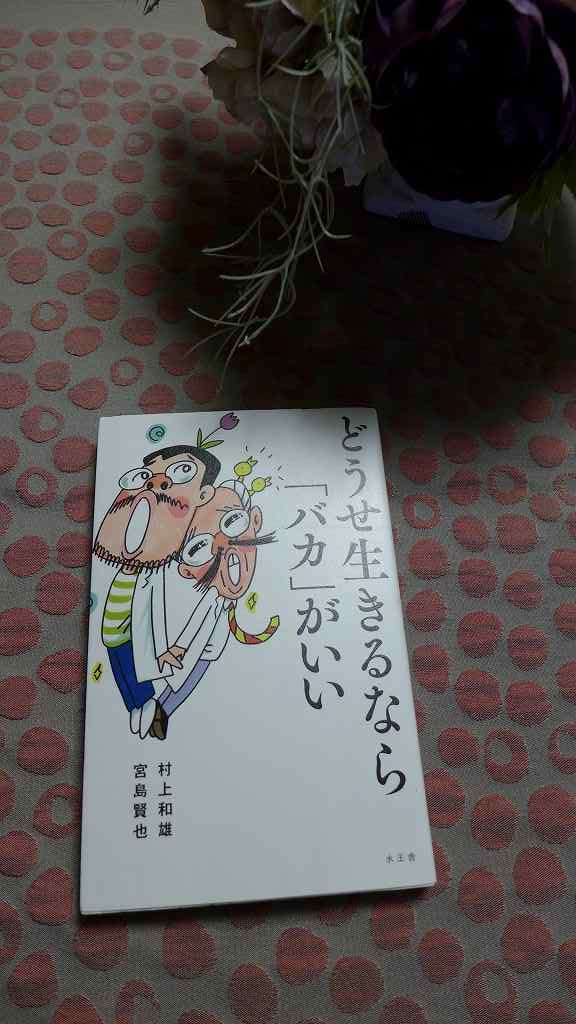 どうせ生きるなら
「バカ」がいい
村上和雄
宮島賢也
水王舎